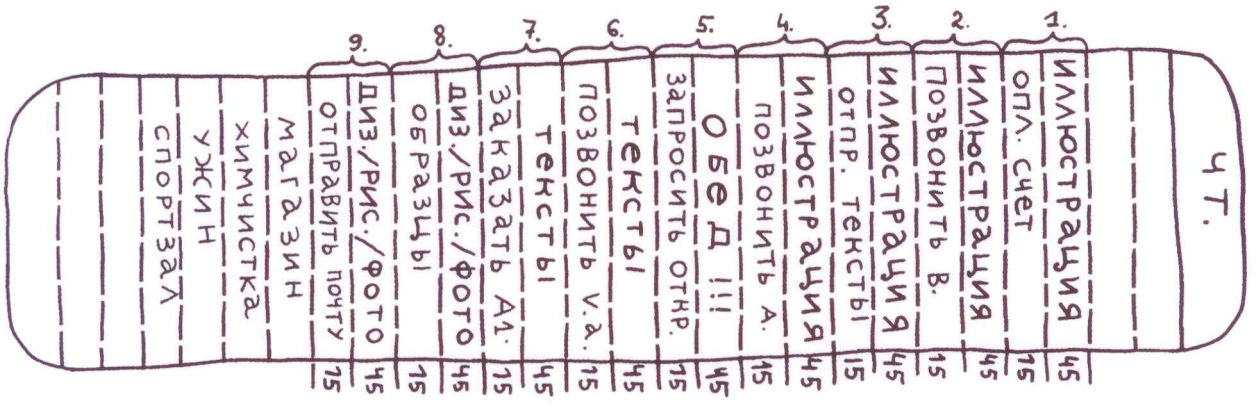 ЧТ.
1.
ИЛЛЮСТРАЦИЯ 45
ОПЛ. СЧЕТ 15
2.
ИЛЛЮСТРАЦИЯ 45
ПОЗВОНИТЬ В. 15
3.
ИЛЛЮСТРАЦИЯ 45
ОТПР. ТЕКСТЫ 15
4.
ИЛЛЮСТРАЦИЯ 45
ПОЗВОНИТЬ А. 15
5.
ОБЕД!!! 45
ЗАПРОСИТЬ ОТКР. 15
6.
ТЕКСТЫ 45
ПОЗВОНИТЬ V.a. 15
7.
ТЕКСТЫ 45
ЗАКАЗАТЬ А1. 15
8.
ДИЗ./РИС./ФОТО 45
ОБРАЗЦЫ 15
9.
ДИЗ./РИС./ФОТО 45
ОТПРАВИТЬ ПОЧТУ 15
МАГАЗИН
ХИМЧИСТКА
УЖИН
СПОРТЗАЛ